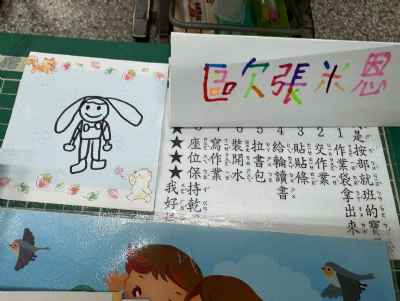 歐張米恩
是按部就班的寶
1作業袋拿出來
2交作業
3貼貼條
4給輪讀書
5拉書包
6裝開水
7寫作業
座位保持乾
★★★我好